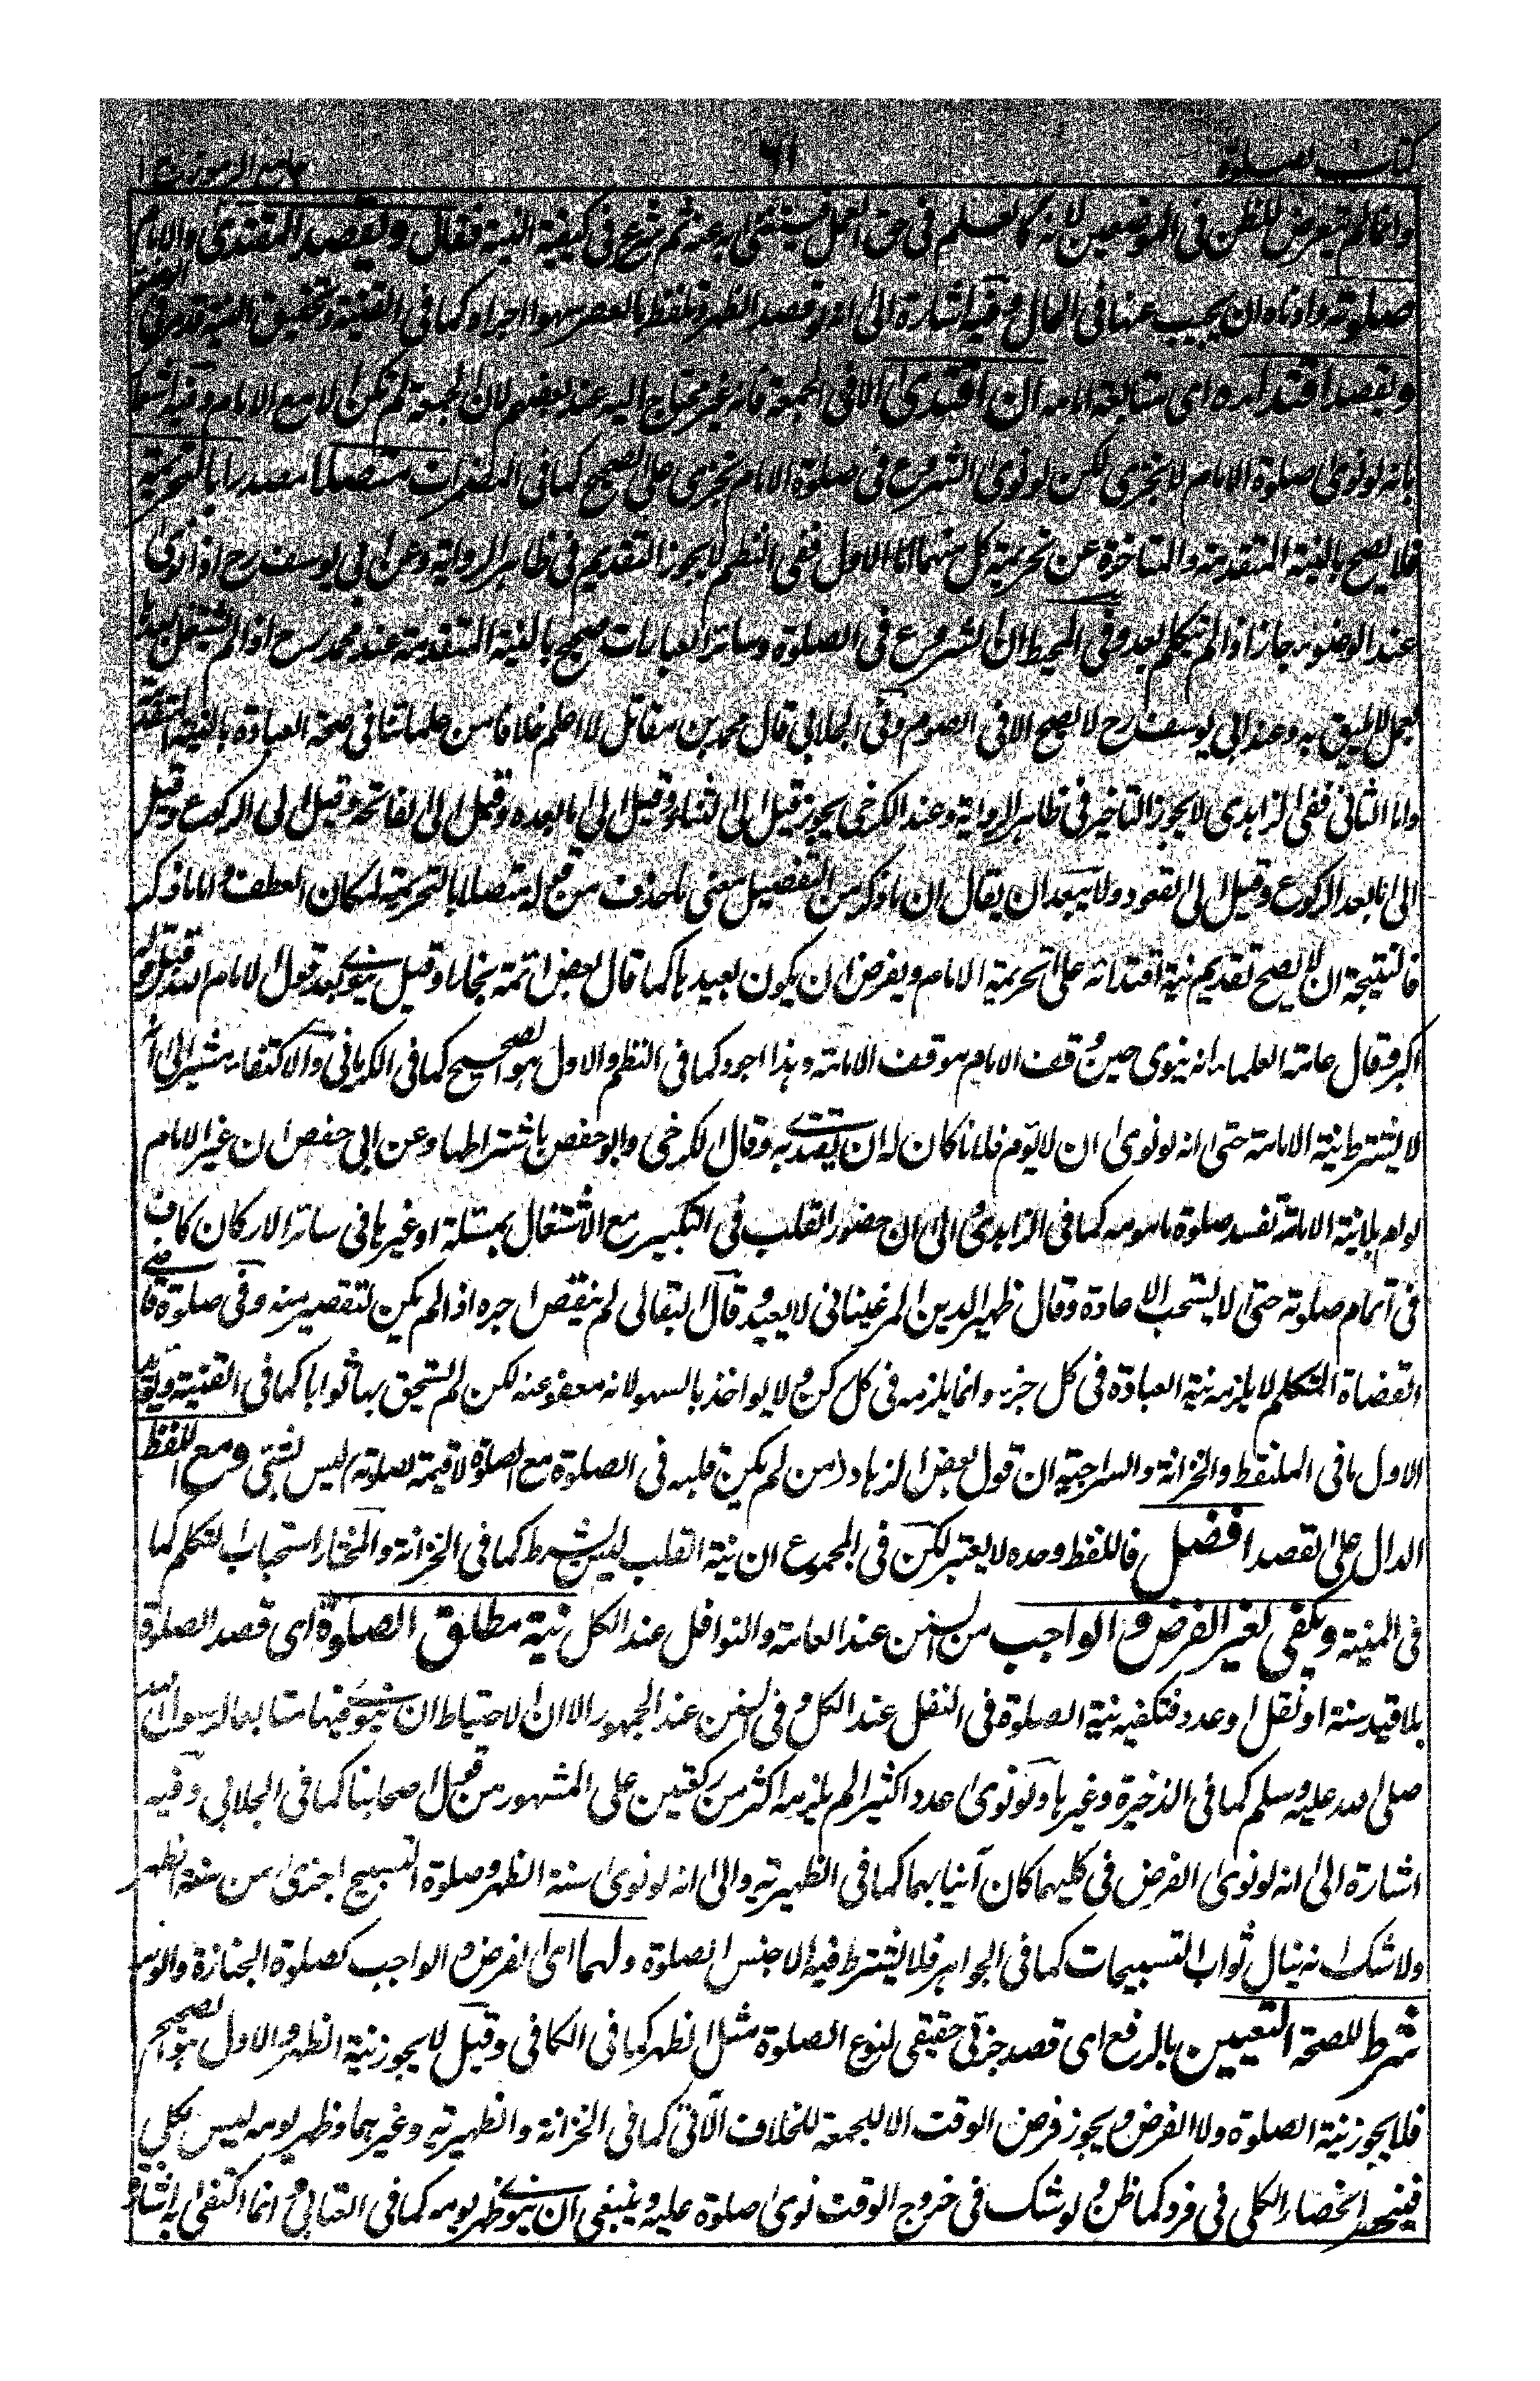 كتاب الصلوة
٦١
جامع الرموز ج ١
وانما لم يتعرض للظن فى الموضعين لانه كالعلم فى حق العمل فيستغنى به عنه ثم شرع فى كيفية النية فقال ويقصد المقتدى والامام
صلوته وادناه ان يجيب عنها فى الحال وفيه اشارة الى انه لو قصد الظهر وتلفظ بالعصر سهوا اجزاه كما فى القنية وتحقيق النية قد مر فى
ويقصد اقتداءه اى متابعة امامه ان اقتدى الا فى الجمعة فانه غير محتاج اليه عند بعضهم لان الجمعة لم تكن الا مع الامام وفيه اشعار
بانه لو نوى صلوة الامام لا تجزى لكن لو نوى الشروع فى صلوة الامام تجزى على الصحيح كما فى المضمرات متصلا مصدرا بالتحريمة
فلا يصح بالنية المتقدمة والمتاخرة عن تحريمة كل منهما اما الاول ففى النظم لا يجوز التقديم فى ظاهر الرواية وعن ابى يوسف رح اذا نوى
عند الوضوء جاز اذا لم يتكلم بعد وفى المحيط ان الشروع فى الصلوة وسائر العبارات صحيح بالنية المتقدمة عند محمد رح اذا لم يشتغل بعدها
بعمل لا يليق به وعند ابى يوسف رح لا يصح الا فى الصوم وفى الجلابى قال محمد بن مقاتل لا اعلم خلافا من علمائنا فى صحة العبادة بالنية المتقدمة
واما الثانى ففى الزاهدى لا يجوز التاخير فى ظاهر الرواية وعند الكرخى يجوز قيل الى الثناء وقيل الى ما بعده وقيل الى الفاتحة وقيل الى الركوع وقيل
الى ما بعد الركوع وقيل الى القعود ولا يبعد ان يقال ان ما ذكر من التفصيل معنى ما حذف من قوله متصلا بالتحريمة لمكان العطف واما ما ذكر
فالنتيجة ان لا يصح تقديم نية اقتدائه على تحريمة الامام ويفرض ان يكون بعيدها كما قال بعض ائمة بخارا وقيل ينوى بعد قول الامام الله قبل قوله
اكبر وقال عامة العلماء انه ينوى حين وقف الامام موقف الامامة وهذا اجود كما فى النظم والاول هو الصحيح كما فى الكرمانى والاكتفاء مشير الى انه
لا يشترط نية الامامة حتى انه لو نوى ان لا يؤم فلانا كان له ان يقتدى به وقال الكرخى وابو حفص باشتراطها وعن ابى حفص ان غير الامام
لو ام بلا نية الامامة تفسد صلوة مامومه كما فى الزاهدى والى ان حضور القلب فى التكبير مع الاشتغال بمسئلة او غيرها فى سائر الاركان كاف
فى اتمام صلوته حتى لا يستحب الاعادة وقال ظهير الدين المرغينانى لا يعيد وقال البقالى لم ينقص اجره اذا لم يكن لتقصير منه وفى صلوة قاضى
القضاة المتكلم لا يلزمه نية العبادة فى كل جزء وانما يلزمه فى كل ركن ولا يواخذ بالسهو لانه معفو عنه لكن لم يستحق بها ثوابا كما فى القنية ويؤيد
الاول ما فى الملتقط والخزانة والسراجية ان قول بعض الزهاد من لم يكن قلبه فى الصلوة مع الصلوة لا قيمة لصلوته ليس بشئ ومع اللفظ
الدال على القصد افضل فاللفظ وحده لا يعتبر لكن فى المجموع ان نية القلب ليس بشرط كما فى الخزانة والمختار استحباب التكلم كما
فى المنية ويكفى لغير الفرض والواجب من السنن عند العامة والنوافل عند الكل نية مطلق الصلوة اى قصد الصلوة
بلا قيد سنة او نفل او عدد فتكفيه نية الصلوة فى النفل عند الكل وفى السنن عند الجمهور الا ان الاحتياط ان ينوى فيها متابعا لرسول الله
صلى الله عليه وسلم كما فى الذخيرة وغيرها ولو نوى عددا كثيرا لم يلزمه اكثر من ركعتين على المشهور من قول اصحابنا كما فى الجلابى وفيه
اشارة الى انه لو نوى الفرض فى كليهما كان آتيا بهما كما فى الظهيرية والى انه لو نوى سنة الظهر وصلوة التسبيح اجتزى من سنة الظهر
ولا شك انه ينال ثواب التسبيحات كما فى الجواهر فلا يشترط فيه الا جنس الصلوة ولهما اى لفرض والواجب كصلوة الجنازة والوتر
شرط للصحة التعيين بالرفع اى قصد جزئى حقيقى لنوع الصلوة مثل الظهر كما فى الكافى وقيل لا يجوز نية الظهر والاول هو الصحيح
فلا يجوز نية الصلوة ولا الفرض ويجوز فرض الوقت الا للجمعة للخلاف الآتى كما فى الخزانة والظهيرية وغيرهما وظهر يومه ليس بكلى
فيتحد انحصار الكلى فى فرد كما ظن ولو شك فى خروج الوقت نوى صلوة عليه وينبغى ان ينوى ظهر يومه كما فى العتابى وانما اكتفى به اشارة